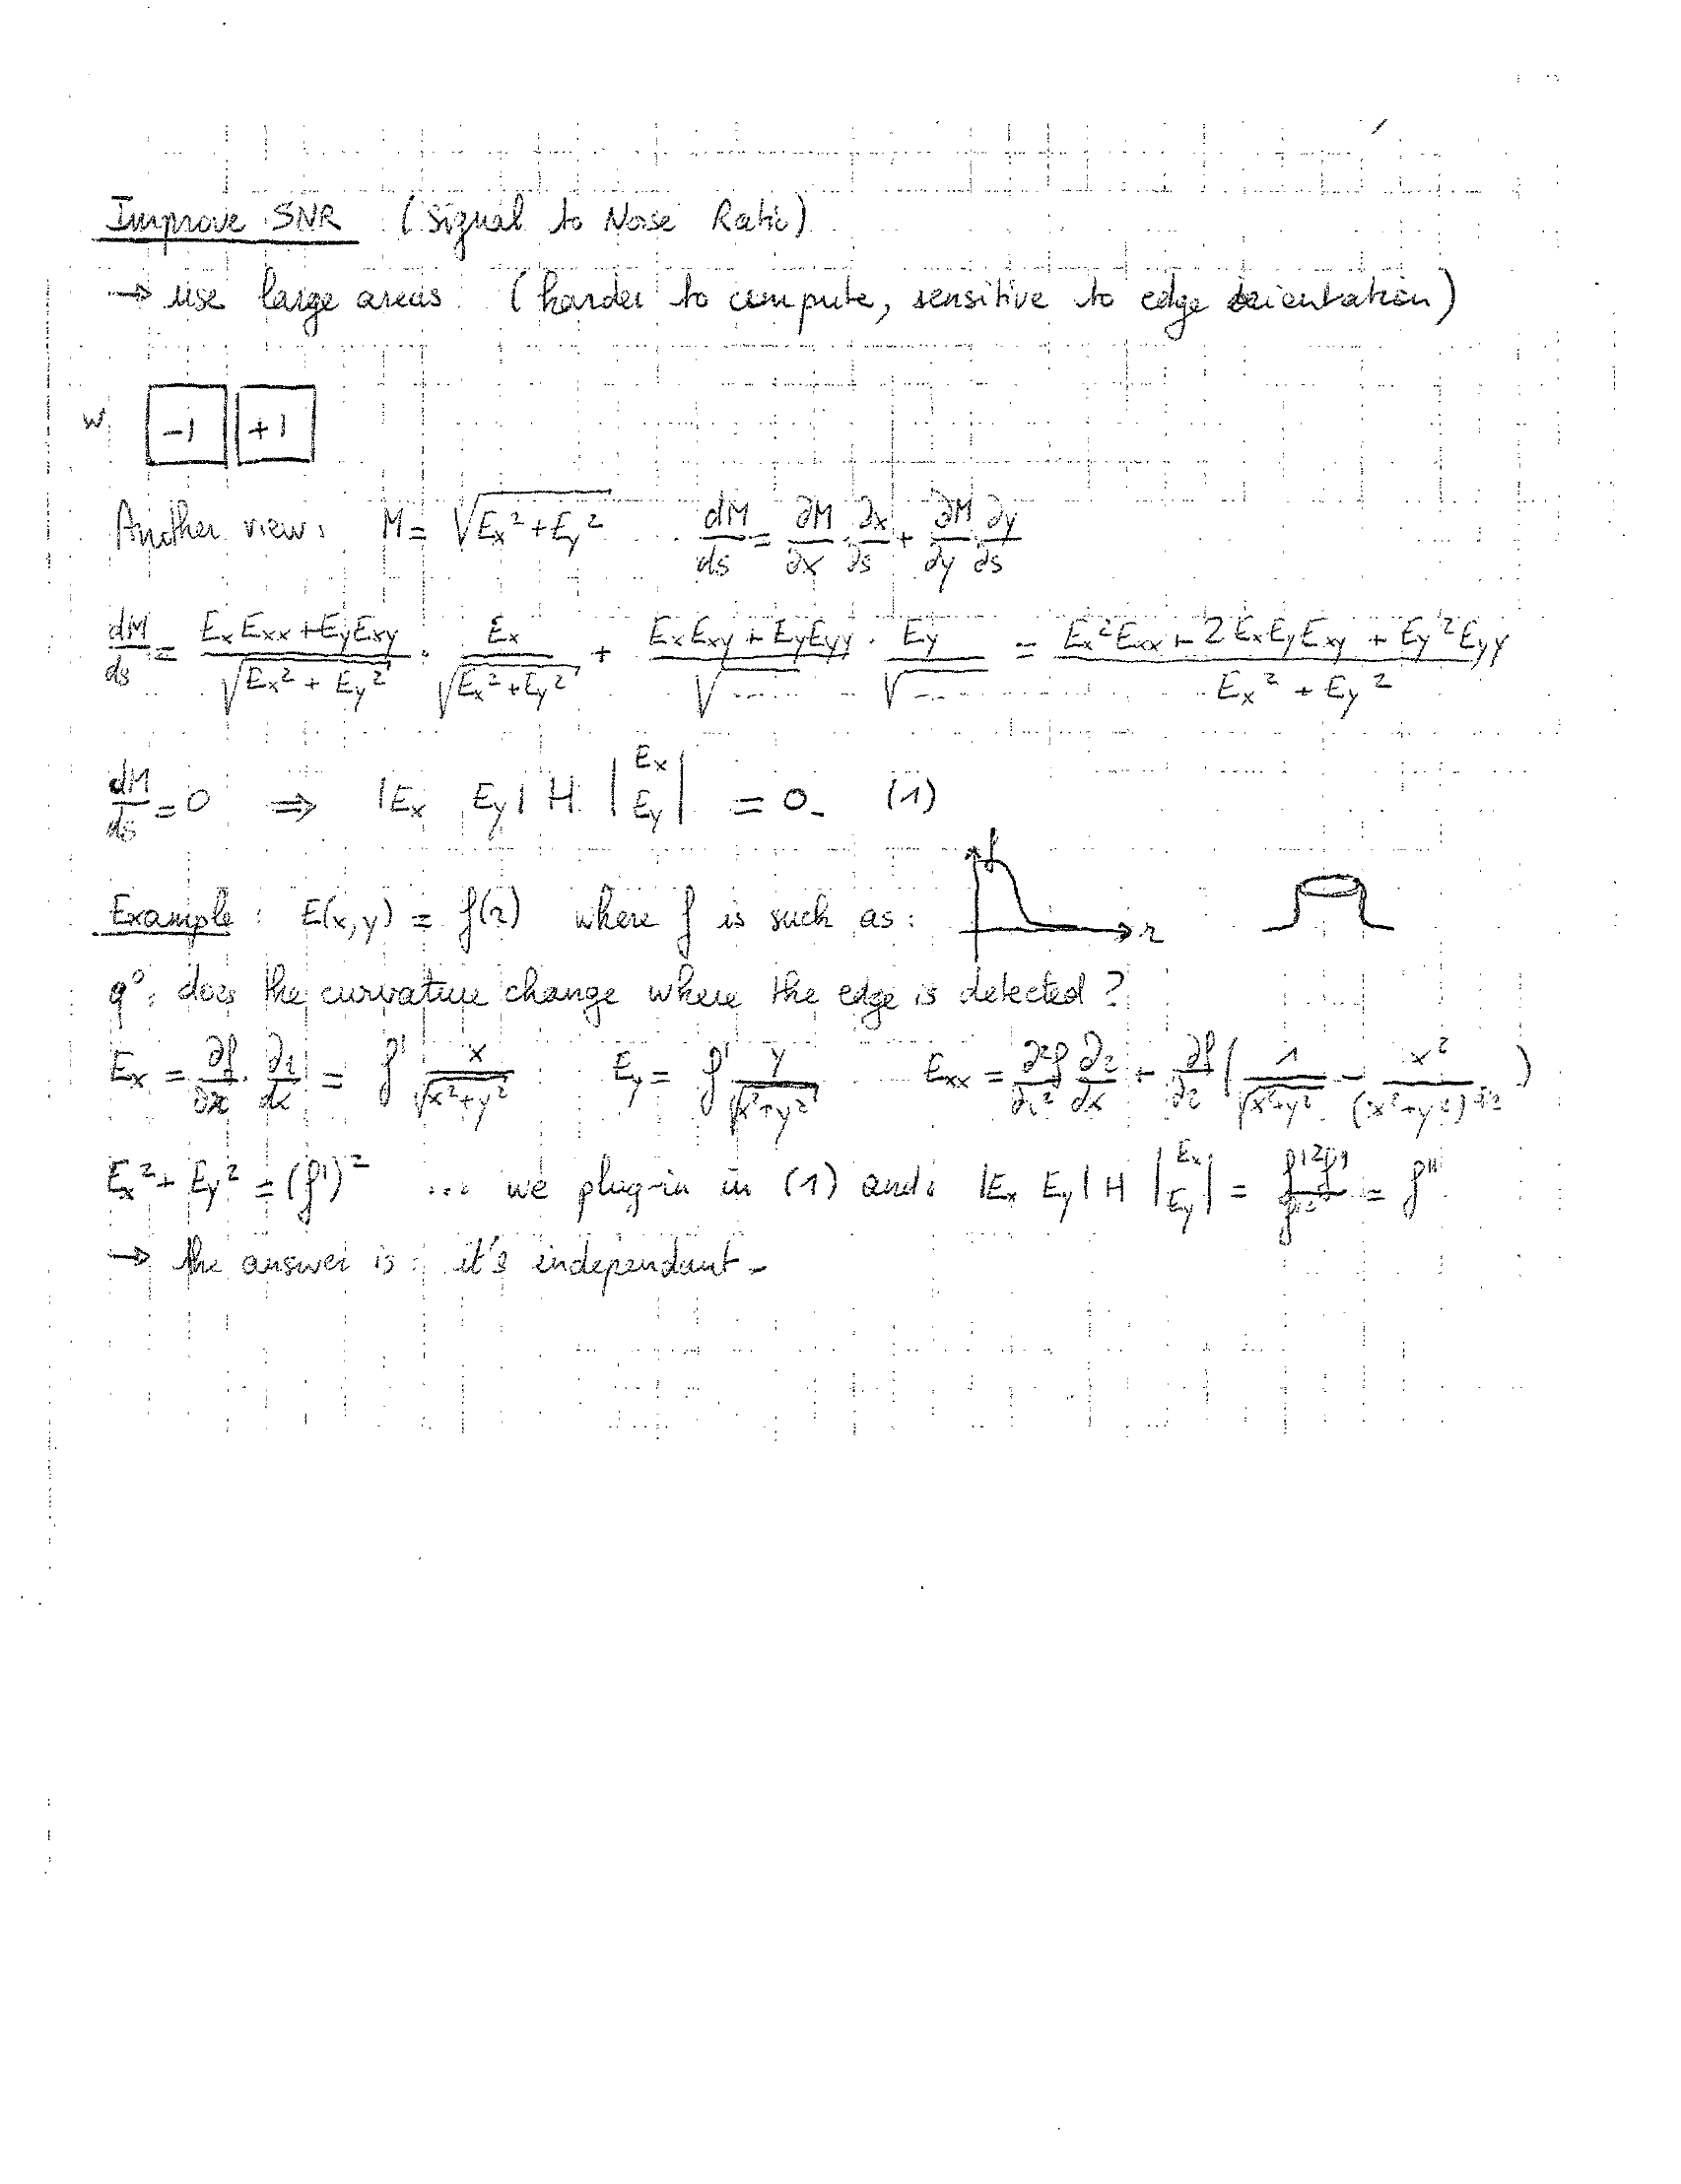 Improve SNR (Signal to Noise Ratio)
→ use large areas (harder to compute, sensitive to edge orientation)
w -1 +1
Another view: M = √(Ex² + Ey²) dM/ds = ∂M/∂x · ∂x/∂s + ∂M/∂y · ∂y/∂s
dM/ds = (Ex Exx + Ey Exy)/√(Ex² + Ey²) · Ex/√(Ex² + Ey²) + (Ex Exy + Ey Eyy)/√..... · Ey/√.... = (Ex² Exx + 2 Ex Ey Exy + Ey² Eyy)/(Ex² + Ey²)
dM/ds = 0 ⇒ |Ex Ey| H |Ex Ey| = 0 - (1)
Example : E(x,y) = f(r) where f is such as : f r
q°: does the curvature change where the edge is detected ?
Ex = ∂f/∂r · ∂r/∂x = f' x/√(x²+y²) Ey = f' y/√(x²+y²) Exx = ∂²f/∂r² ∂r/∂x + ∂f/∂r (1/√(x²+y²) - x²/(x²+y²)^3/2)
Ex² + Ey² = (f')² ... we plug-in in (1) and: |Ex Ey| H |Ex Ey| = f'²f''/f'² = f''
→ the answer is : it's independant -